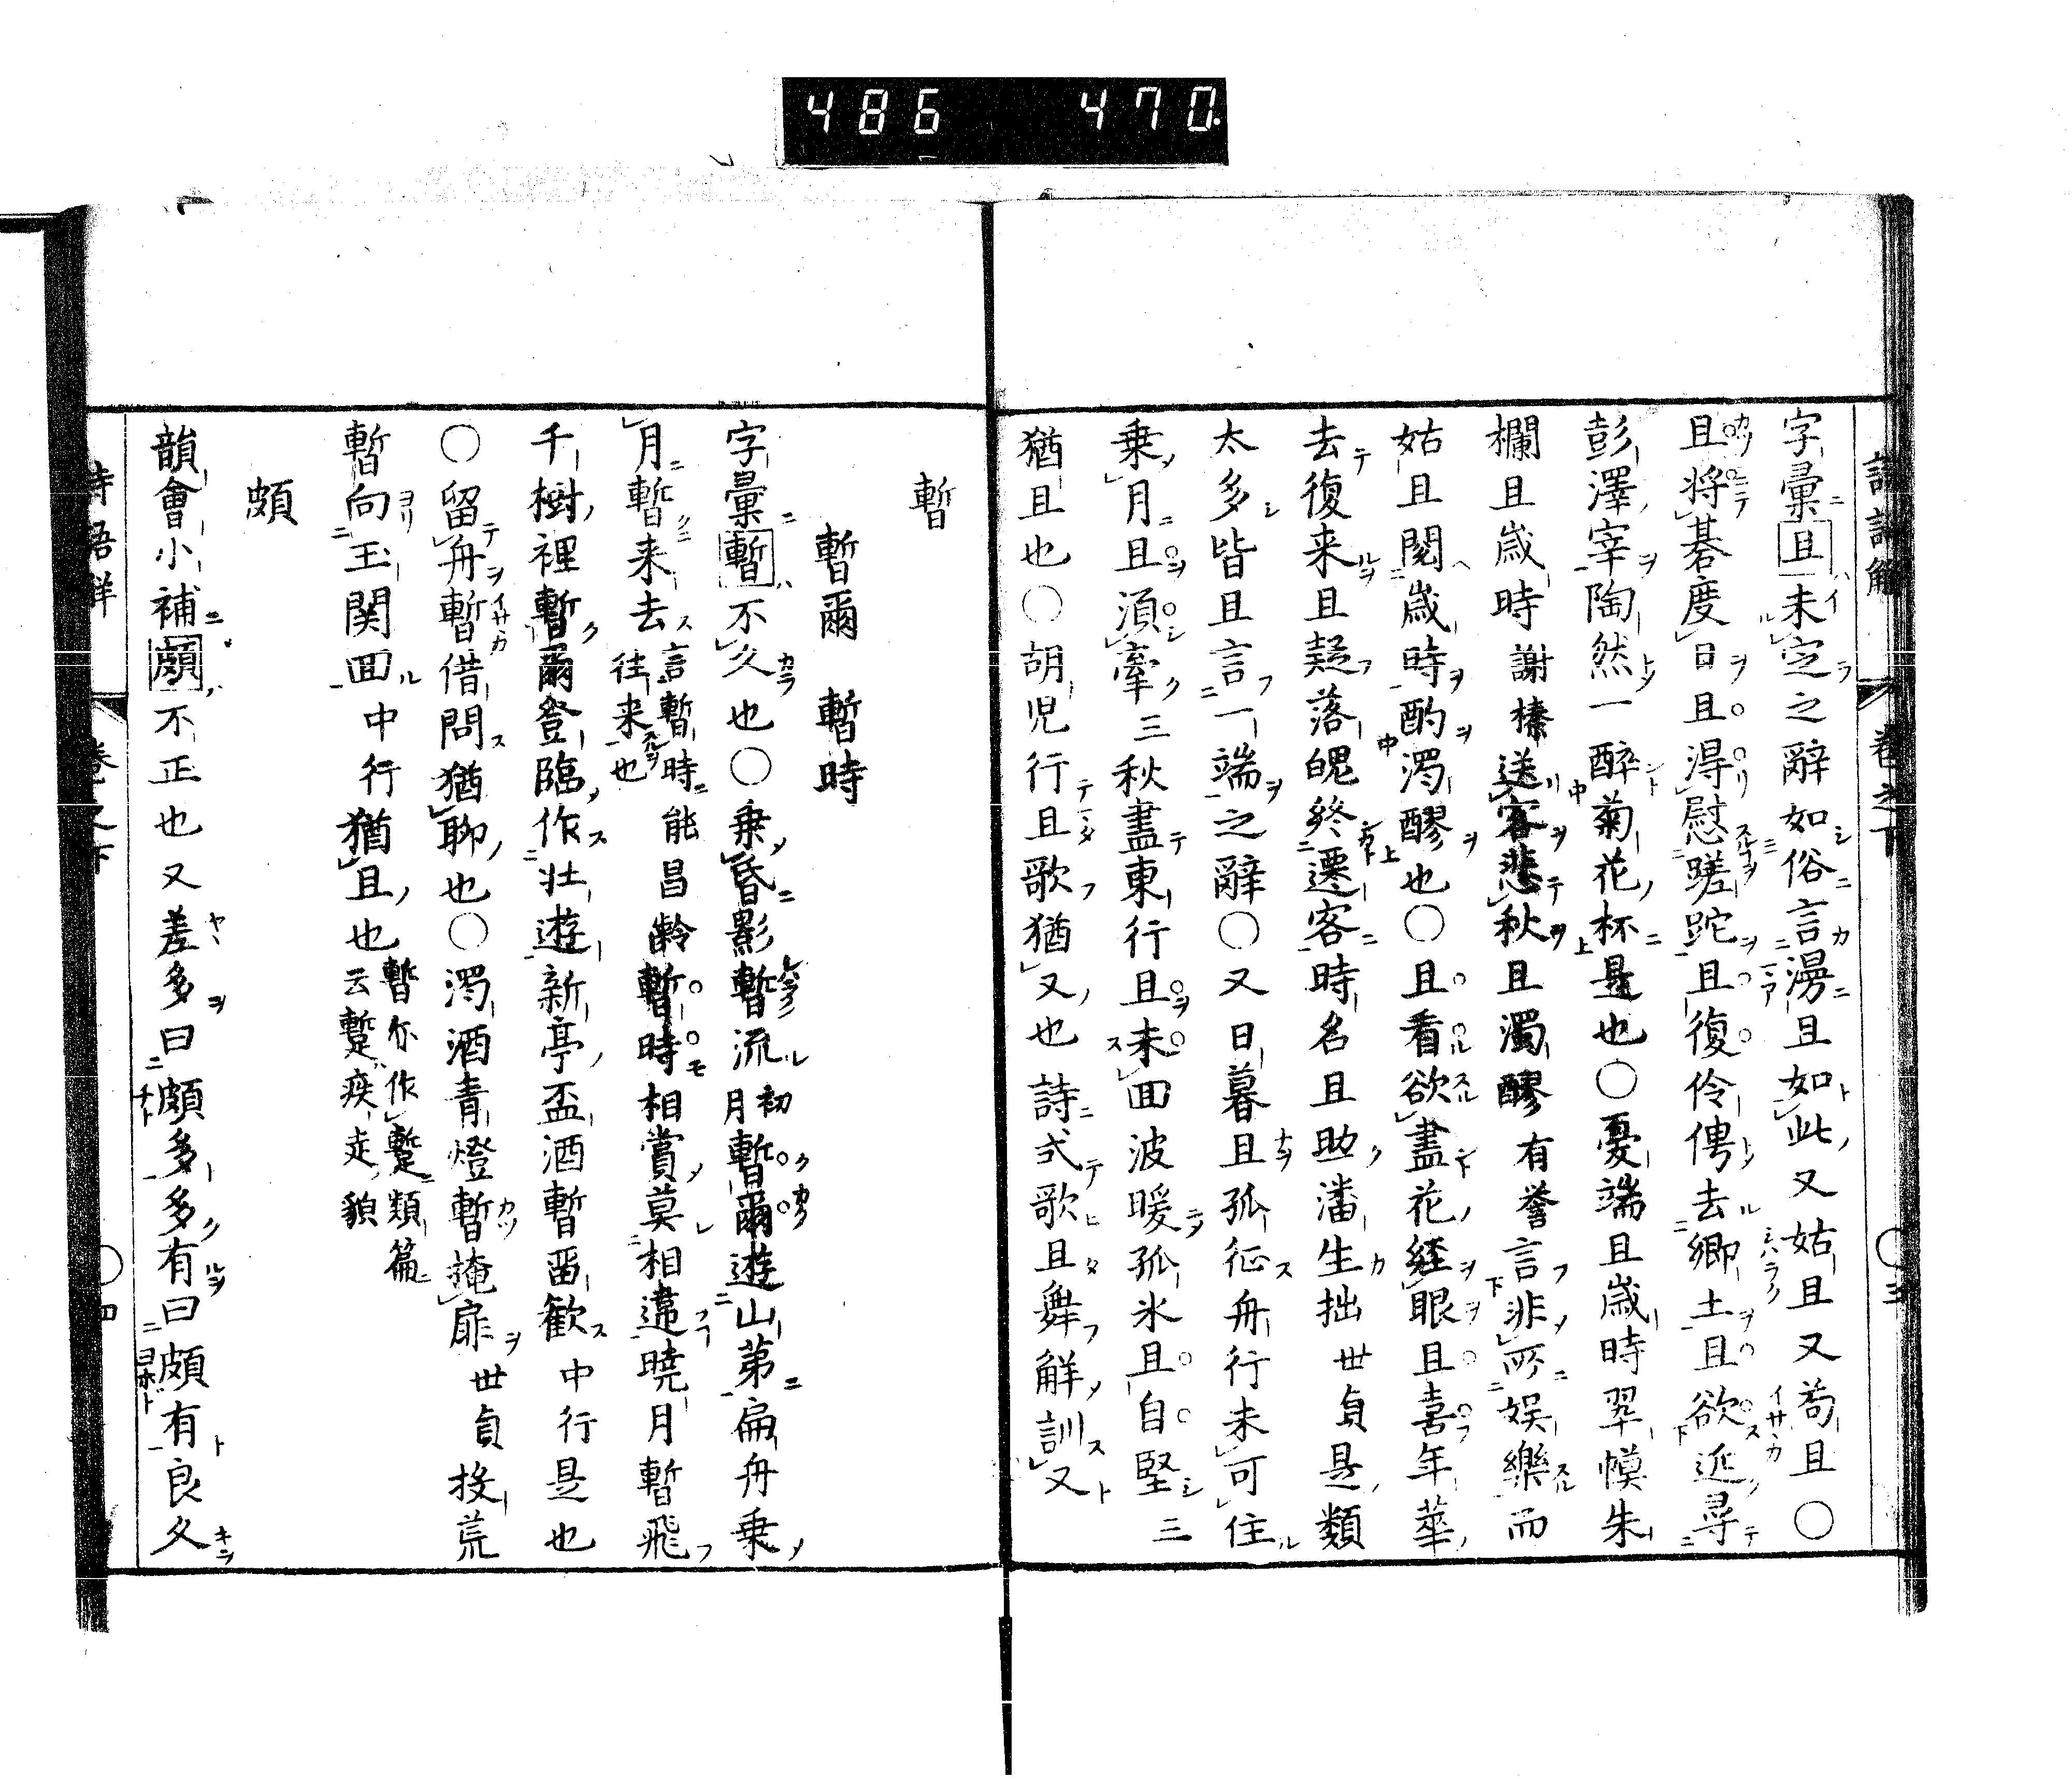 486 470
字彙且未定之辭如俗言漫且如此又姑且又苟且〇
且將碁度日且得慰蹉跎且復伶俜去鄉土且欲近尋
彭澤宰陶然一醉菊花杯是也〇憂端且歳時翠幙朱
欄且歳時謝榛送客悲秋且濁醪有誉言非所娯樂而
姑且閲歳時酌濁醪也〇且看欲盡花経眼且喜年華
去復来且疑落魄終遷客時名且助潘生拙世貞是類
太多皆且言一端之辭〇又日暮且孤征舟行未可住
乗月且須牽三秋盡東行且未回波暖孤氷且自堅三
猶且也〇胡児行且歌猶又也詩式歌且舞解訓又
暫
暫爾 暫時
字彙暫不久也〇乗昏影暫流初月暫爾遊山第扁舟乗
月暫来去言暫時往来也能昌齢暫時相賞莫相違暁月暫飛
千樹裡暫爾登臨作壮遊新亭盃酒暫留歓中行是也
〇留舟暫借問猶聊也〇濁酒青燈暫掩扉世貞投荒
暫向玉関回中行猶且也暫亦作蹔類篇云蹔疾走貌
頗
韻會小補頗不正也又差多曰頗多多有曰頗有良久
巻之下
〇四